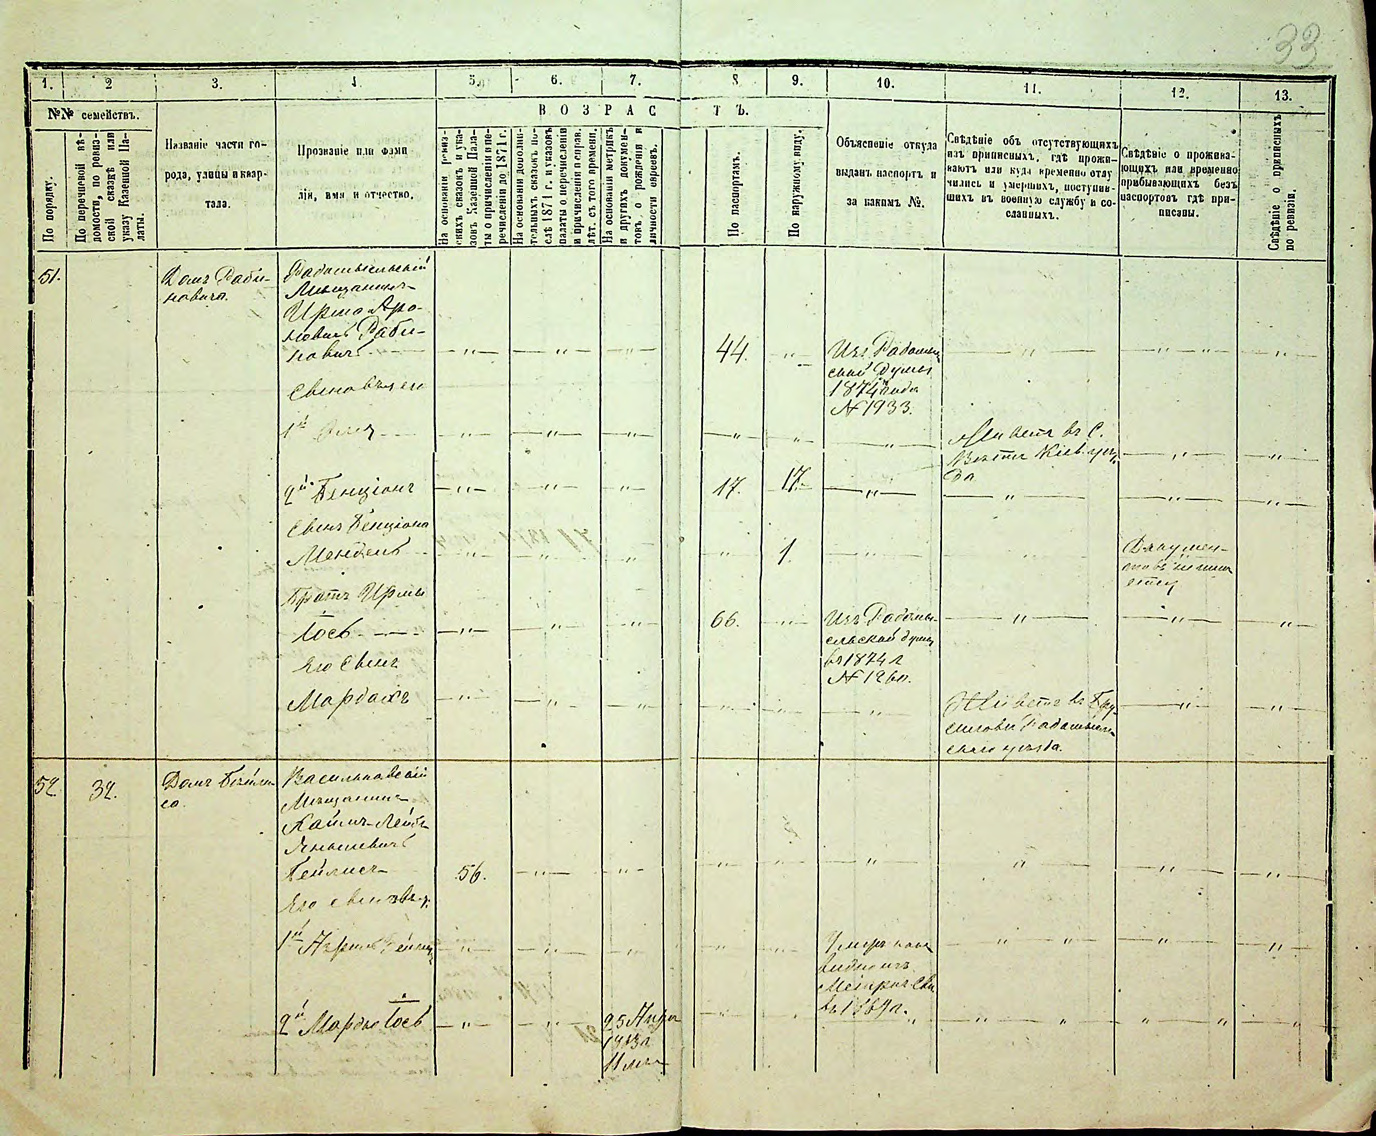 33
1. 2 3. 4 5. 6. 7. 8. 9. 10. 11. 12. 13.
№№ семействъ.
По порядку.
По перечневой вѣ-
домости, по ревиз-
ской сказкѣ или
указу Казенной Па-
латы.
Названіе части го-
рода, улицы и квар-
тала.
Прозваніе или фами
лія, имя и отчество.
ВОЗРАСТЪ.
На основаніи ревиз-
скихъ сказокъ и ука-
зовъ Казенной Пала-
ты о причисленіи и пе-
речисленіи до 1871 г.
На основаніи дополни-
тельныхъ сказокъ по-
слѣ 1871 г. и указовъ
палаты о перечисленіи
и причисленіи и справ.
лѣт. съ того времени.
На основаніи метрикъ
и другихъ докумен-
товъ, о рожденіи и
личности евреевъ.
По паспортамъ.
По наружному виду.
Объясненіе откуда
выданъ паспортъ и
за какимъ №.
Свѣдѣніе объ отсутствующихъ
изъ приписныхъ, гдѣ прожи-
ваютъ или куда временно отлу
чились и умершихъ, поступив-
шихъ въ военную службу и со-
сланныхъ.
Свѣдѣніе о прожива-
ющихъ или временно
прибывающихъ безъ
паспортовъ гдѣ при-
писаны.
Свѣдѣніе о приписныхъ
по ревизіи.
51.
Домъ Раби-
новича.
Радомысльскій
Мѣщанинъ
Ирма Аро-
новичъ Раби-
новичъ
44.
Изъ Радомы
ской Думы
1874 года
№ 1933.
Сыновья его
1й
Живетъ въ С.
2й Бенціонъ
17. 17.
Сынъ Бенціона
Мендель
1.
Докумен-
товъ не имѣ
етъ
Братъ Ирмы
Іось
66.
Изъ Радомы-
сльской думы
въ 1874 г
№ 1260.
Его Сынъ
Мордахъ
Живетъ въ Бру
силовѣ Радомысль
скаго уѣзда.
52. 32.
Домъ Бейли-
са.
Васильковскій
Мѣщанинъ
Хаимъ-Лейба
Бейлисъ
56.
Его сыновья:
1й
въ 1869 г.
2й Мордко Іось
25
1853 г